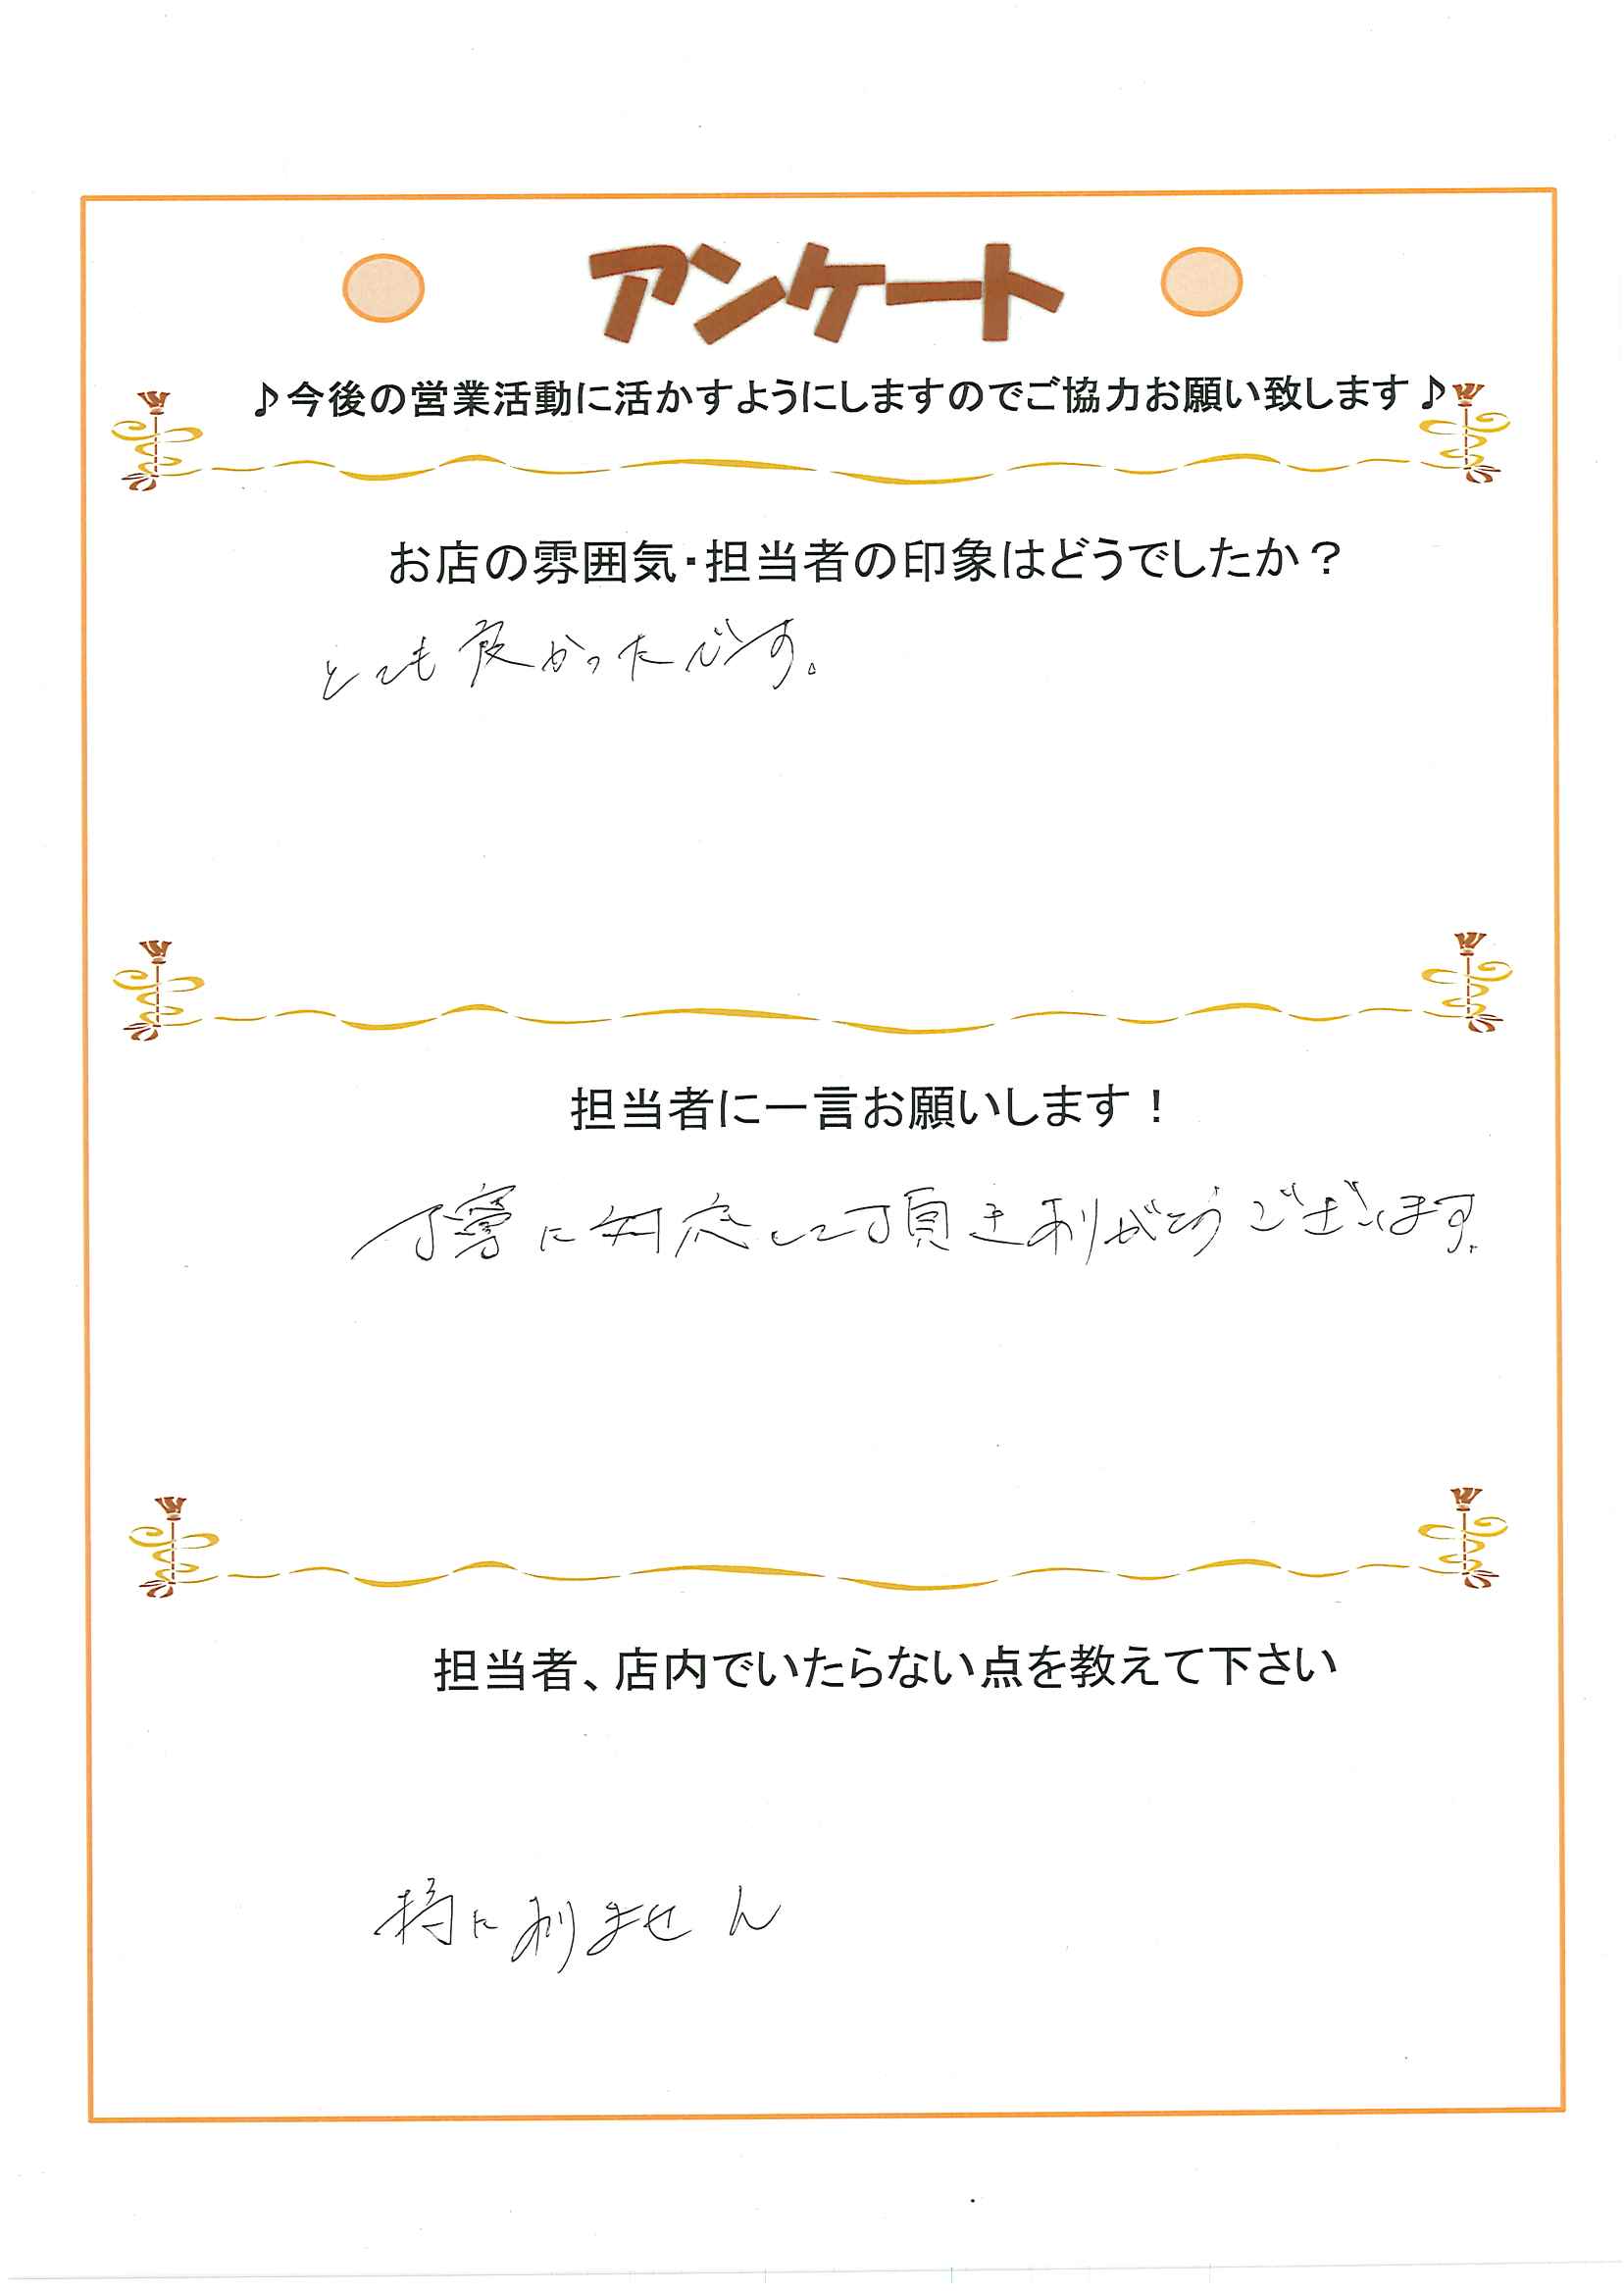 アンケート
♪今後の営業活動に活かすようにしますのでご協力お願い致します♪
お店の雰囲気・担当者の印象はどうでしたか？
とても良かったです。
担当者に一言お願いします！
丁寧に対応して頂きありがとうございます。
担当者、店内でいたらない点を教えて下さい
特にありません